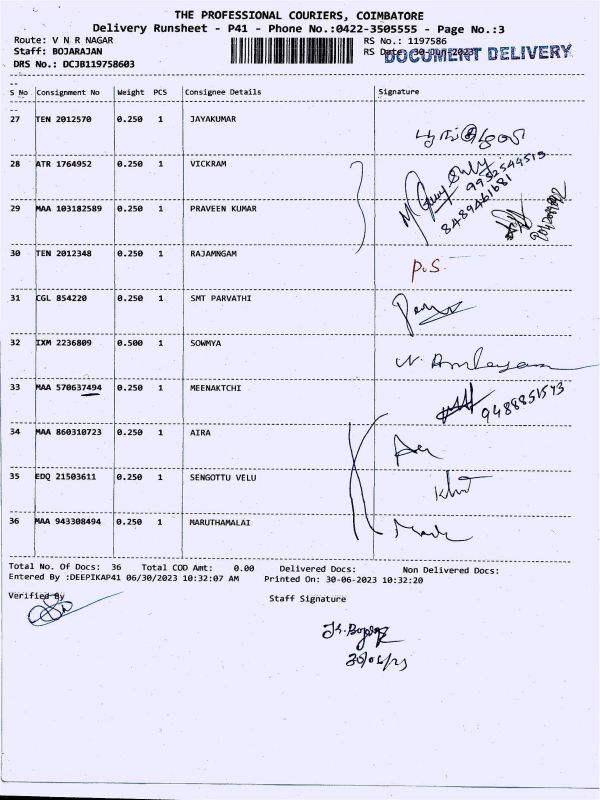 THE PROFESSIONAL COURIERS, COIMBATORE
Delivery Runsheet - P41 - Phone No.:0422-3505555 - Page No.:3
Route: V N R NAGAR
RS No.: 1197586
Staff: BOJARAJAN
RS Date: 30-Jun-2023
DOCUMENT DELIVERY
DRS No.: DCJB119758603
S No Consignment No Weight PCS Consignee Details Signature
27 TEN 2012570 0.250 1 JAYAKUMAR
28 ATR 1764952 0.250 1 VICKRAM
9952544513
29 MAA 103182589 0.250 1 PRAVEEN KUMAR
8489461681
30 TEN 2012348 0.250 1 RAJAMNGAM
P.S.
31 CGL 854220 0.250 1 SMT PARVATHI
32 IXM 2236809 0.500 1 SOWMYA
33 MAA 570637494 0.250 1 MEENAKTCHI
9488851543
34 MAA 860310723 0.250 1 AIRA
35 EDQ 21503611 0.250 1 SENGOTTU VELU
36 MAA 943308494 0.250 1 MARUTHAMALAI
Total No. Of Docs: 36 Total COD Amt: 0.00 Delivered Docs: Non Delivered Docs:
Entered By :DEEPIKAP41 06/30/2023 10:32:07 AM Printed On: 30-06-2023 10:32:20
Verified By
Staff Signature
30/06/23